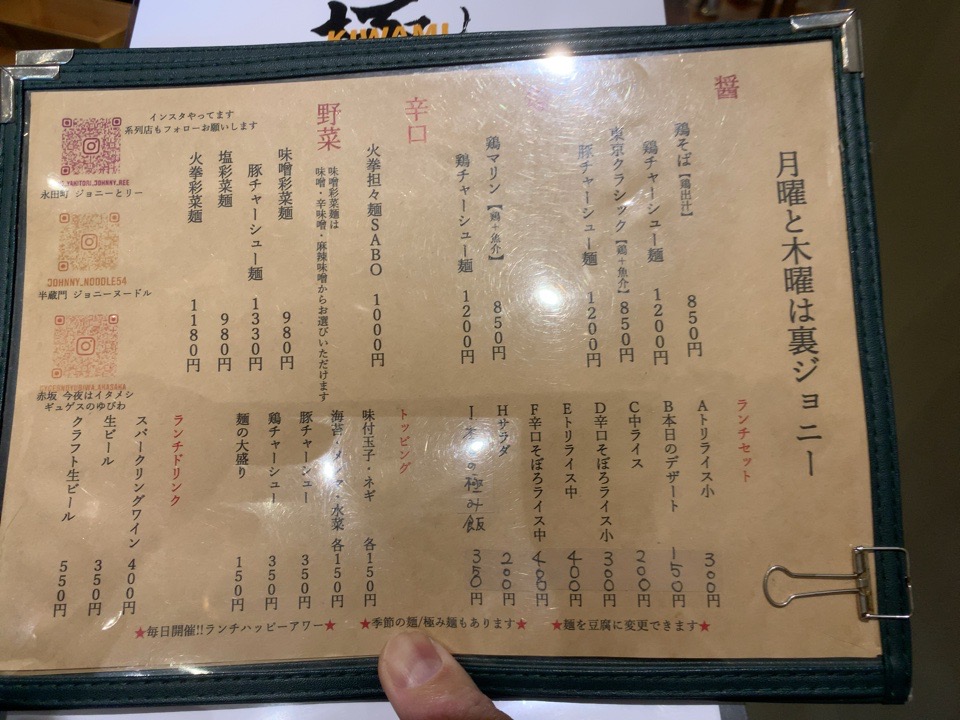 極
KIWAMI
月曜と木曜は裏ジョニー
醤
鶏そば【鶏出汁】 850円
鶏チャーシュー麺 1200円
東京クラシック【鶏+魚介】 850円
豚チャーシュー麺 1200円
鶏マリン【鶏+魚介】 850円
鶏チャーシュー麺 1200円
辛口
火拳担々麺SABO 1000円
野菜
味噌彩菜麺は
味噌・辛味噌・麻辣味噌からお選びいただけます
味噌彩菜麺 980円
豚チャーシュー麺 1330円
塩彩菜麺 980円
火拳彩菜麺 1180円
インスタやってます
系列店もフォローお願いします
永田町 ジョニーとリー
JOHNNY_NOODLE54
半蔵門 ジョニーヌードル
赤坂 今夜はイタメシ
ギュゲスのゆびわ
ランチセット
Aトリライス小 300円
B本日のデザート 150円
C中ライス 200円
D辛口そぼろライス小 300円
Eトリライス中 400円
F辛口そぼろライス中 400円
Hサラダ 200円
の極み飯 350円
トッピング
味付玉子・ネギ 各150円
海苔・メンマ・水菜 各150円
豚チャーシュー 350円
鶏チャーシュー 350円
麺の大盛り 150円
ランチドリンク
スパークリングワイン 400円
生ビール 350円
クラフト生ビール 550円
★毎日開催!!ランチハッピーアワー★ ★季節の麺/極み麺もあります★ ★麺を豆腐に変更できます★